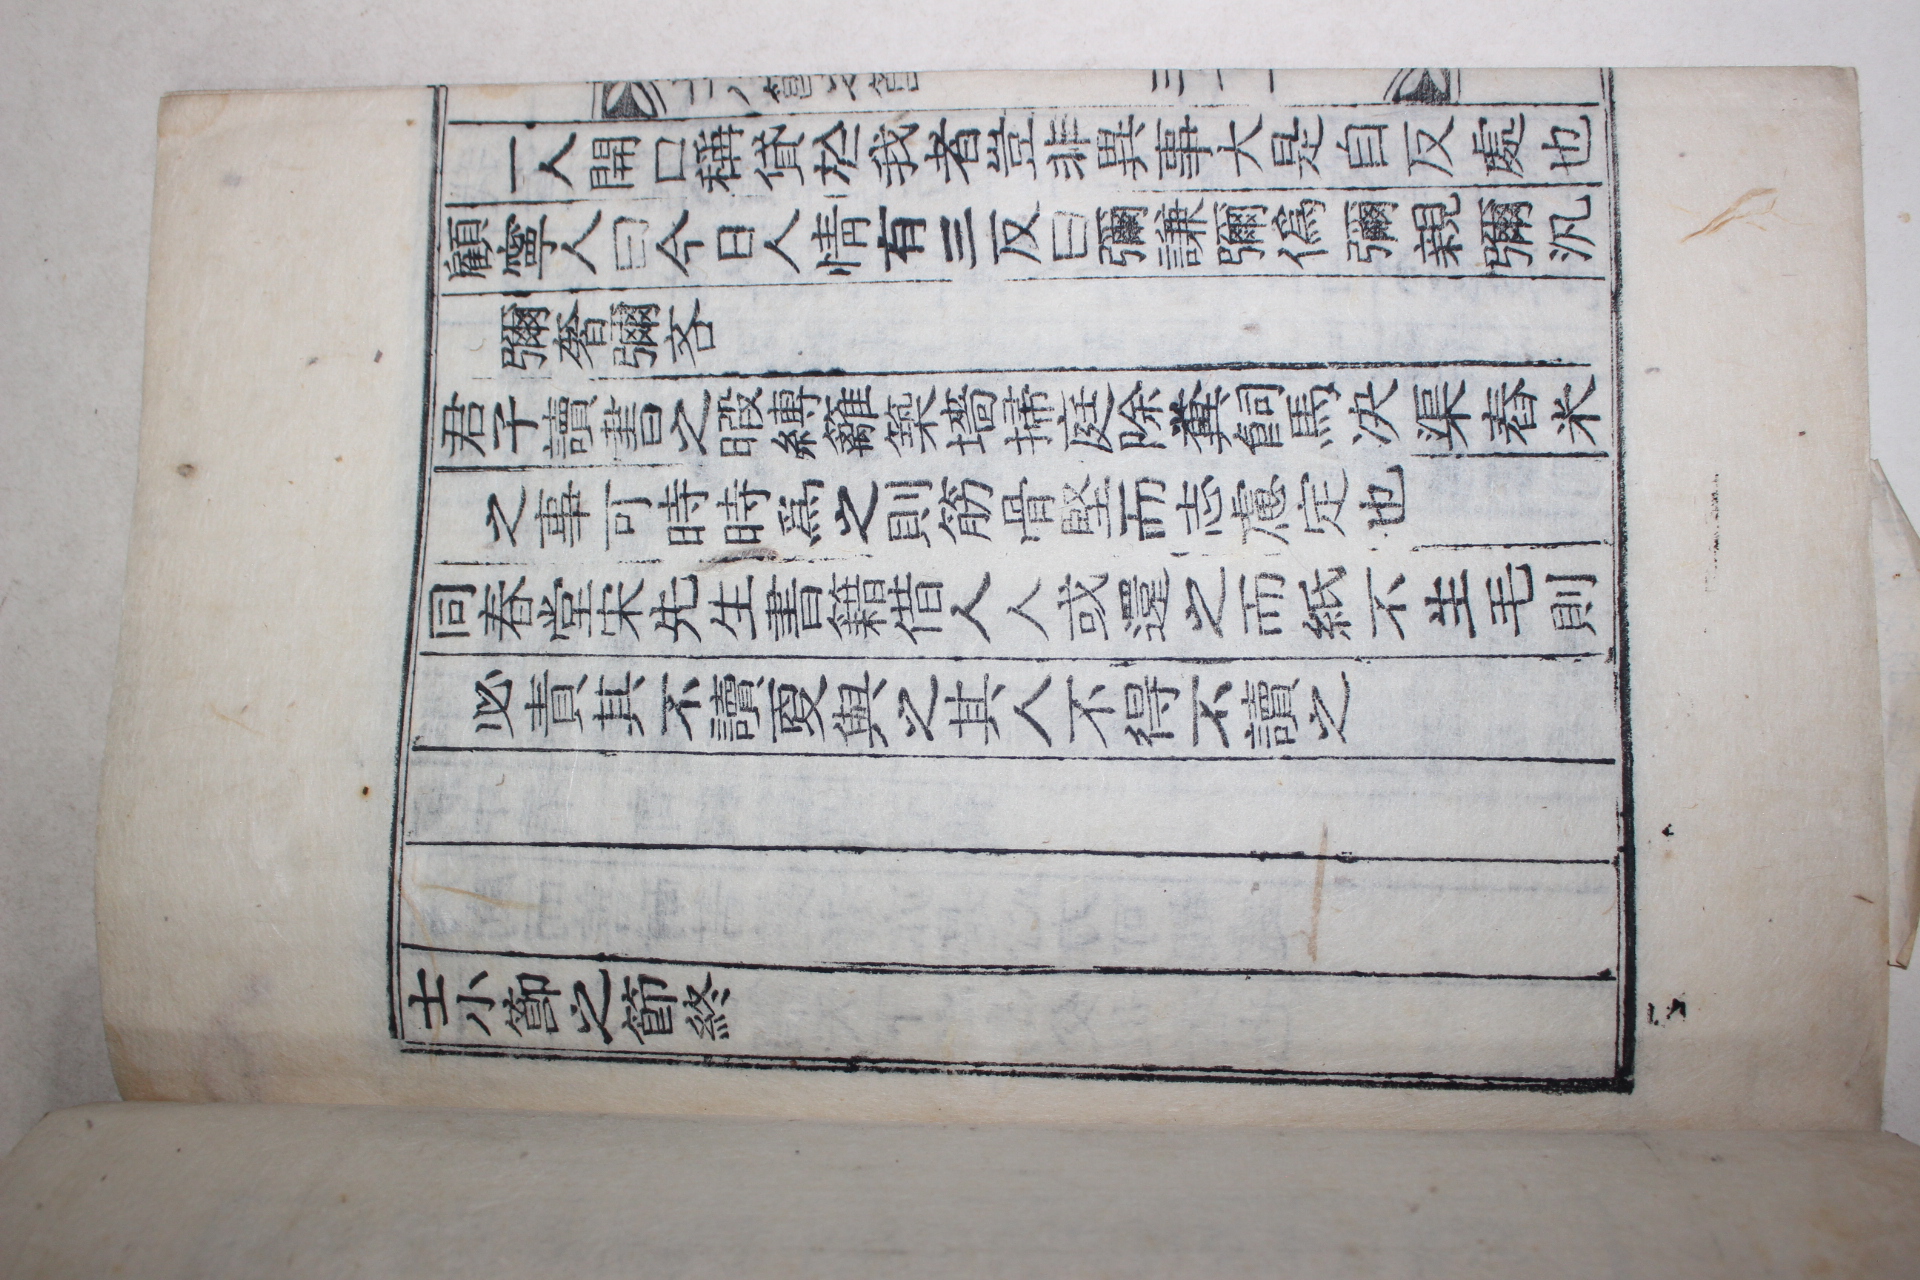 一人開口稱貸於我者豈非異事大是自反處也
顧寧人曰今日人情有三反曰彌謙彌僞彌親彌汎
彌奢彌吝
君子讀書之暇縛籬築墻掃庭除糞飼馬决渠舂米
之事可時時爲之則筋骨堅而志慮定也
同春堂宋先生書籍借人人或還之而紙不生毛則
必責其不讀更與之其人不得不讀之
士小節之節終